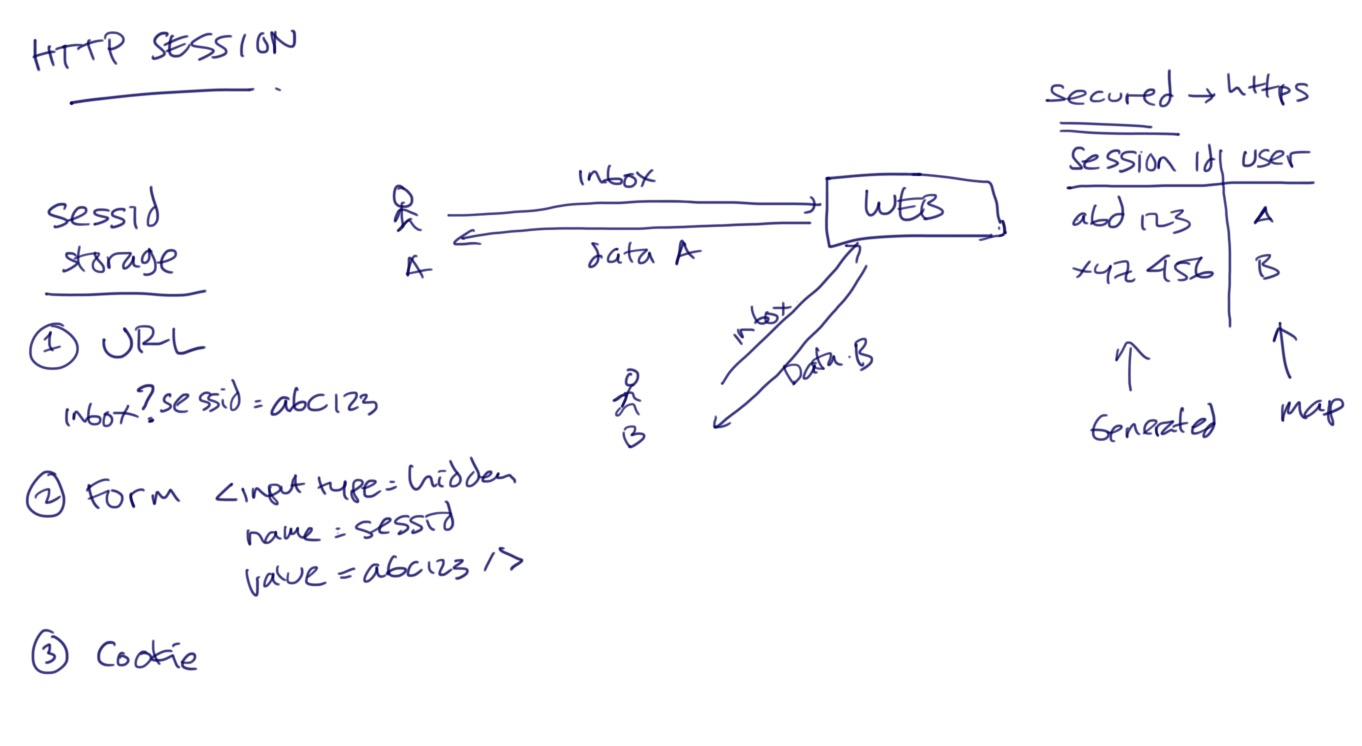 HTTP SESSION
sessid
storage
① URL
inbox?sessid=abc123
② Form <input type=hidden
name=sessid
value=abc123 />
③ Cookie
inbox
data A
A
WEB
inbox
Data.B
B
secured → https
session id | user
abd 123 A
xyz 456 B
Generated
map